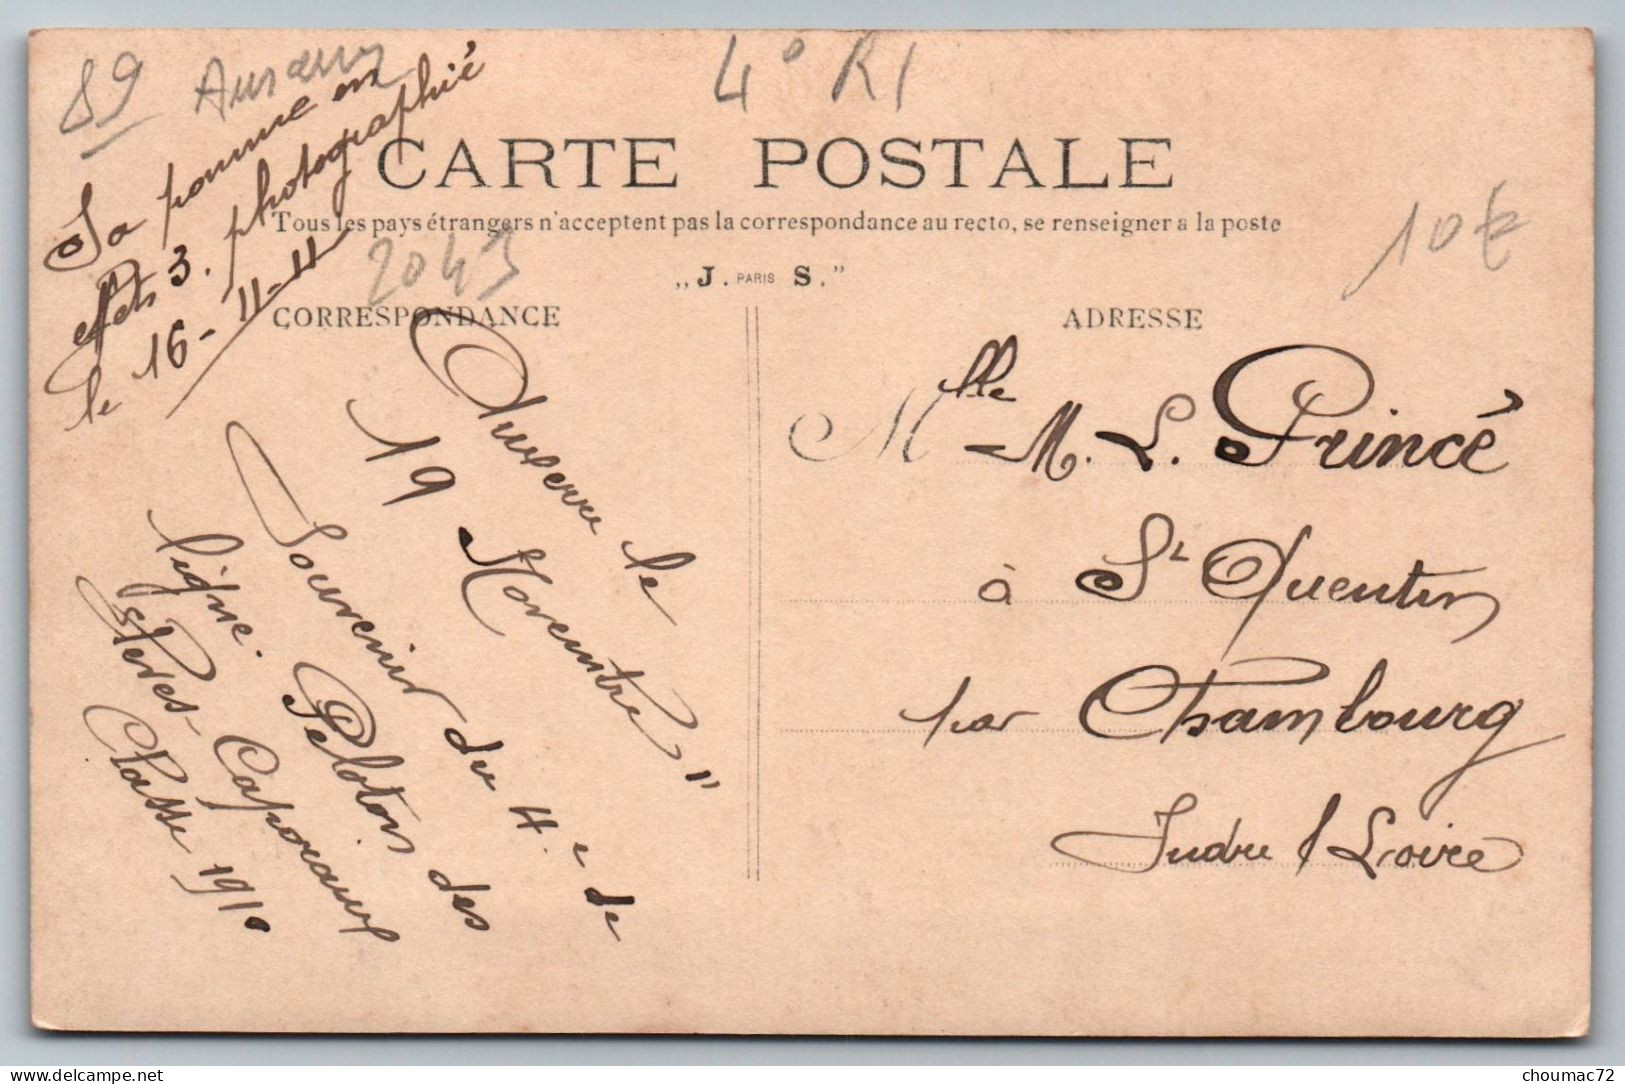 89 Auxerre
4° RI
La pomme en
effets 3. photographié
le 16-11-11
CARTE POSTALE
Tous les pays étrangers n'acceptent pas la correspondance au recto, se renseigner a la poste
2043
10€
„ J. PARIS S. "
CORRESPONDANCE
ADRESSE
Auxerre le
19 Novembre "
Souvenir du 4.e de
ligne. Peloton des
élèves-Caporaux
Classe 1910
Mlle M. L. Princé
à St Quentin
par Chambourg
Indre / Loire
choumac72